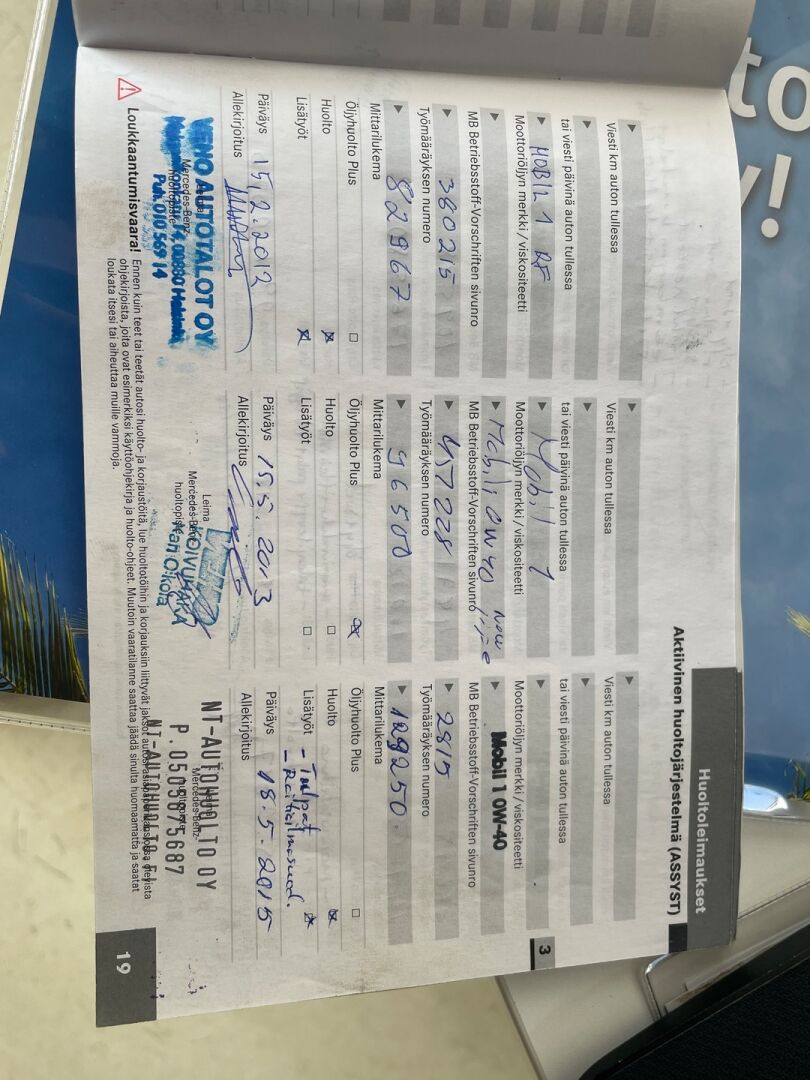 Huoltoleimaukset
Aktiivinen huoltojärjestelmä (ASSYST)
3
Viesti km auton tullessa
tai viesti päivinä auton tullessa
Moottoriöljyn merkki / viskositeetti
MOBIL 1 RF
MB Betriebsstoff-Vorschriften sivunro
Työmääräyksen numero
380215
Mittarilukema
82967
Öljyhuolto Plus
Huolto
Lisätyöt
Päiväys 15.2.2012
Allekirjoitus
VEHO AUTOTALOT OY
Mercedes-Benz
huoltopiste
00880 Helsinki
Puh. 010 569 14
Viesti km auton tullessa
tai viesti päivinä auton tullessa
Mobil 1
Moottoriöljyn merkki / viskositeetti
Mobil 1 0W40 New
MB Betriebsstoff-Vorschriften sivunro
457228
Työmääräyksen numero
96500
Mittarilukema
Öljyhuolto Plus
Huolto
Lisätyöt
Päiväys 15.5.2013
Allekirjoitus
Leima
Mercedes-Benz
huoltopiste
KOIVUHAKA
Viesti km auton tullessa
tai viesti päivinä auton tullessa
Moottoriöljyn merkki / viskositeetti
Mobil 1 0W-40
MB Betriebsstoff-Vorschriften sivunro
2815
Työmääräyksen numero
129250
Mittarilukema
Öljyhuolto Plus
Huolto
Lisätyöt - Tulpat
- Raitisilmasuod.
Päiväys 18.5.2015
Allekirjoitus
NT-AUTOHUOLTO OY
Mercedes-Benz
P. 0505875687
NT-AUTOHUOLTO.FI
Loukkaantumisvaara! Ennen kuin teet tai teetät autosi huolto- ja korjaustöitä, lue huoltotöihin ja korjauksiin liittyvät jaksot
ohjekirjoista, joita ovat esimerkiksi käyttöohjekirja ja huolto-ohjeet. Muutoin vaaratilanne saattaa jäädä sinulta huomaamatta ja saatat
loukata itsesi tai aiheuttaa muille vammoja.
19
to
y!